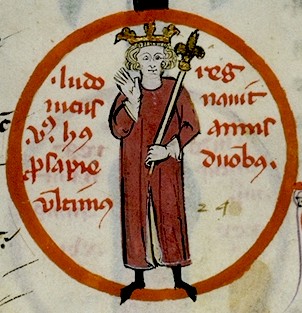 ·ludo
uicus
v9. h9
psapie
vltim9
reg
nauit
annis
duob9.
24